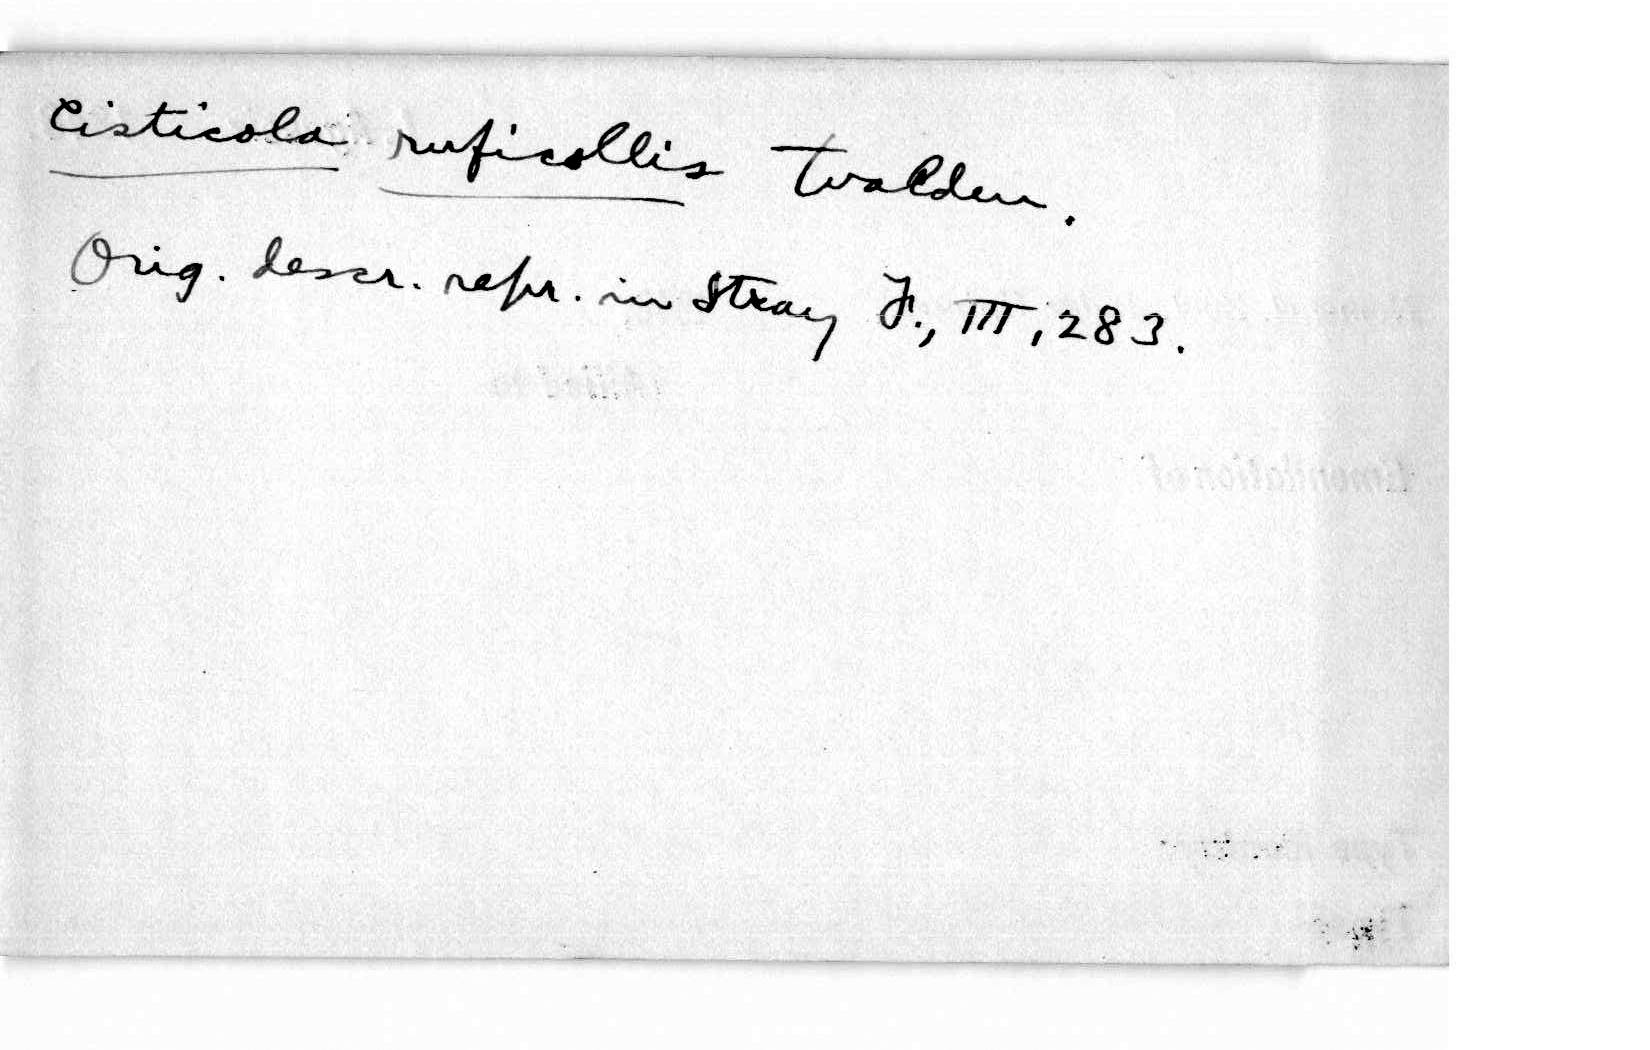 Cisticola ruficollis Walden.
Orig. descr. repr. in Stray F., III, 283.